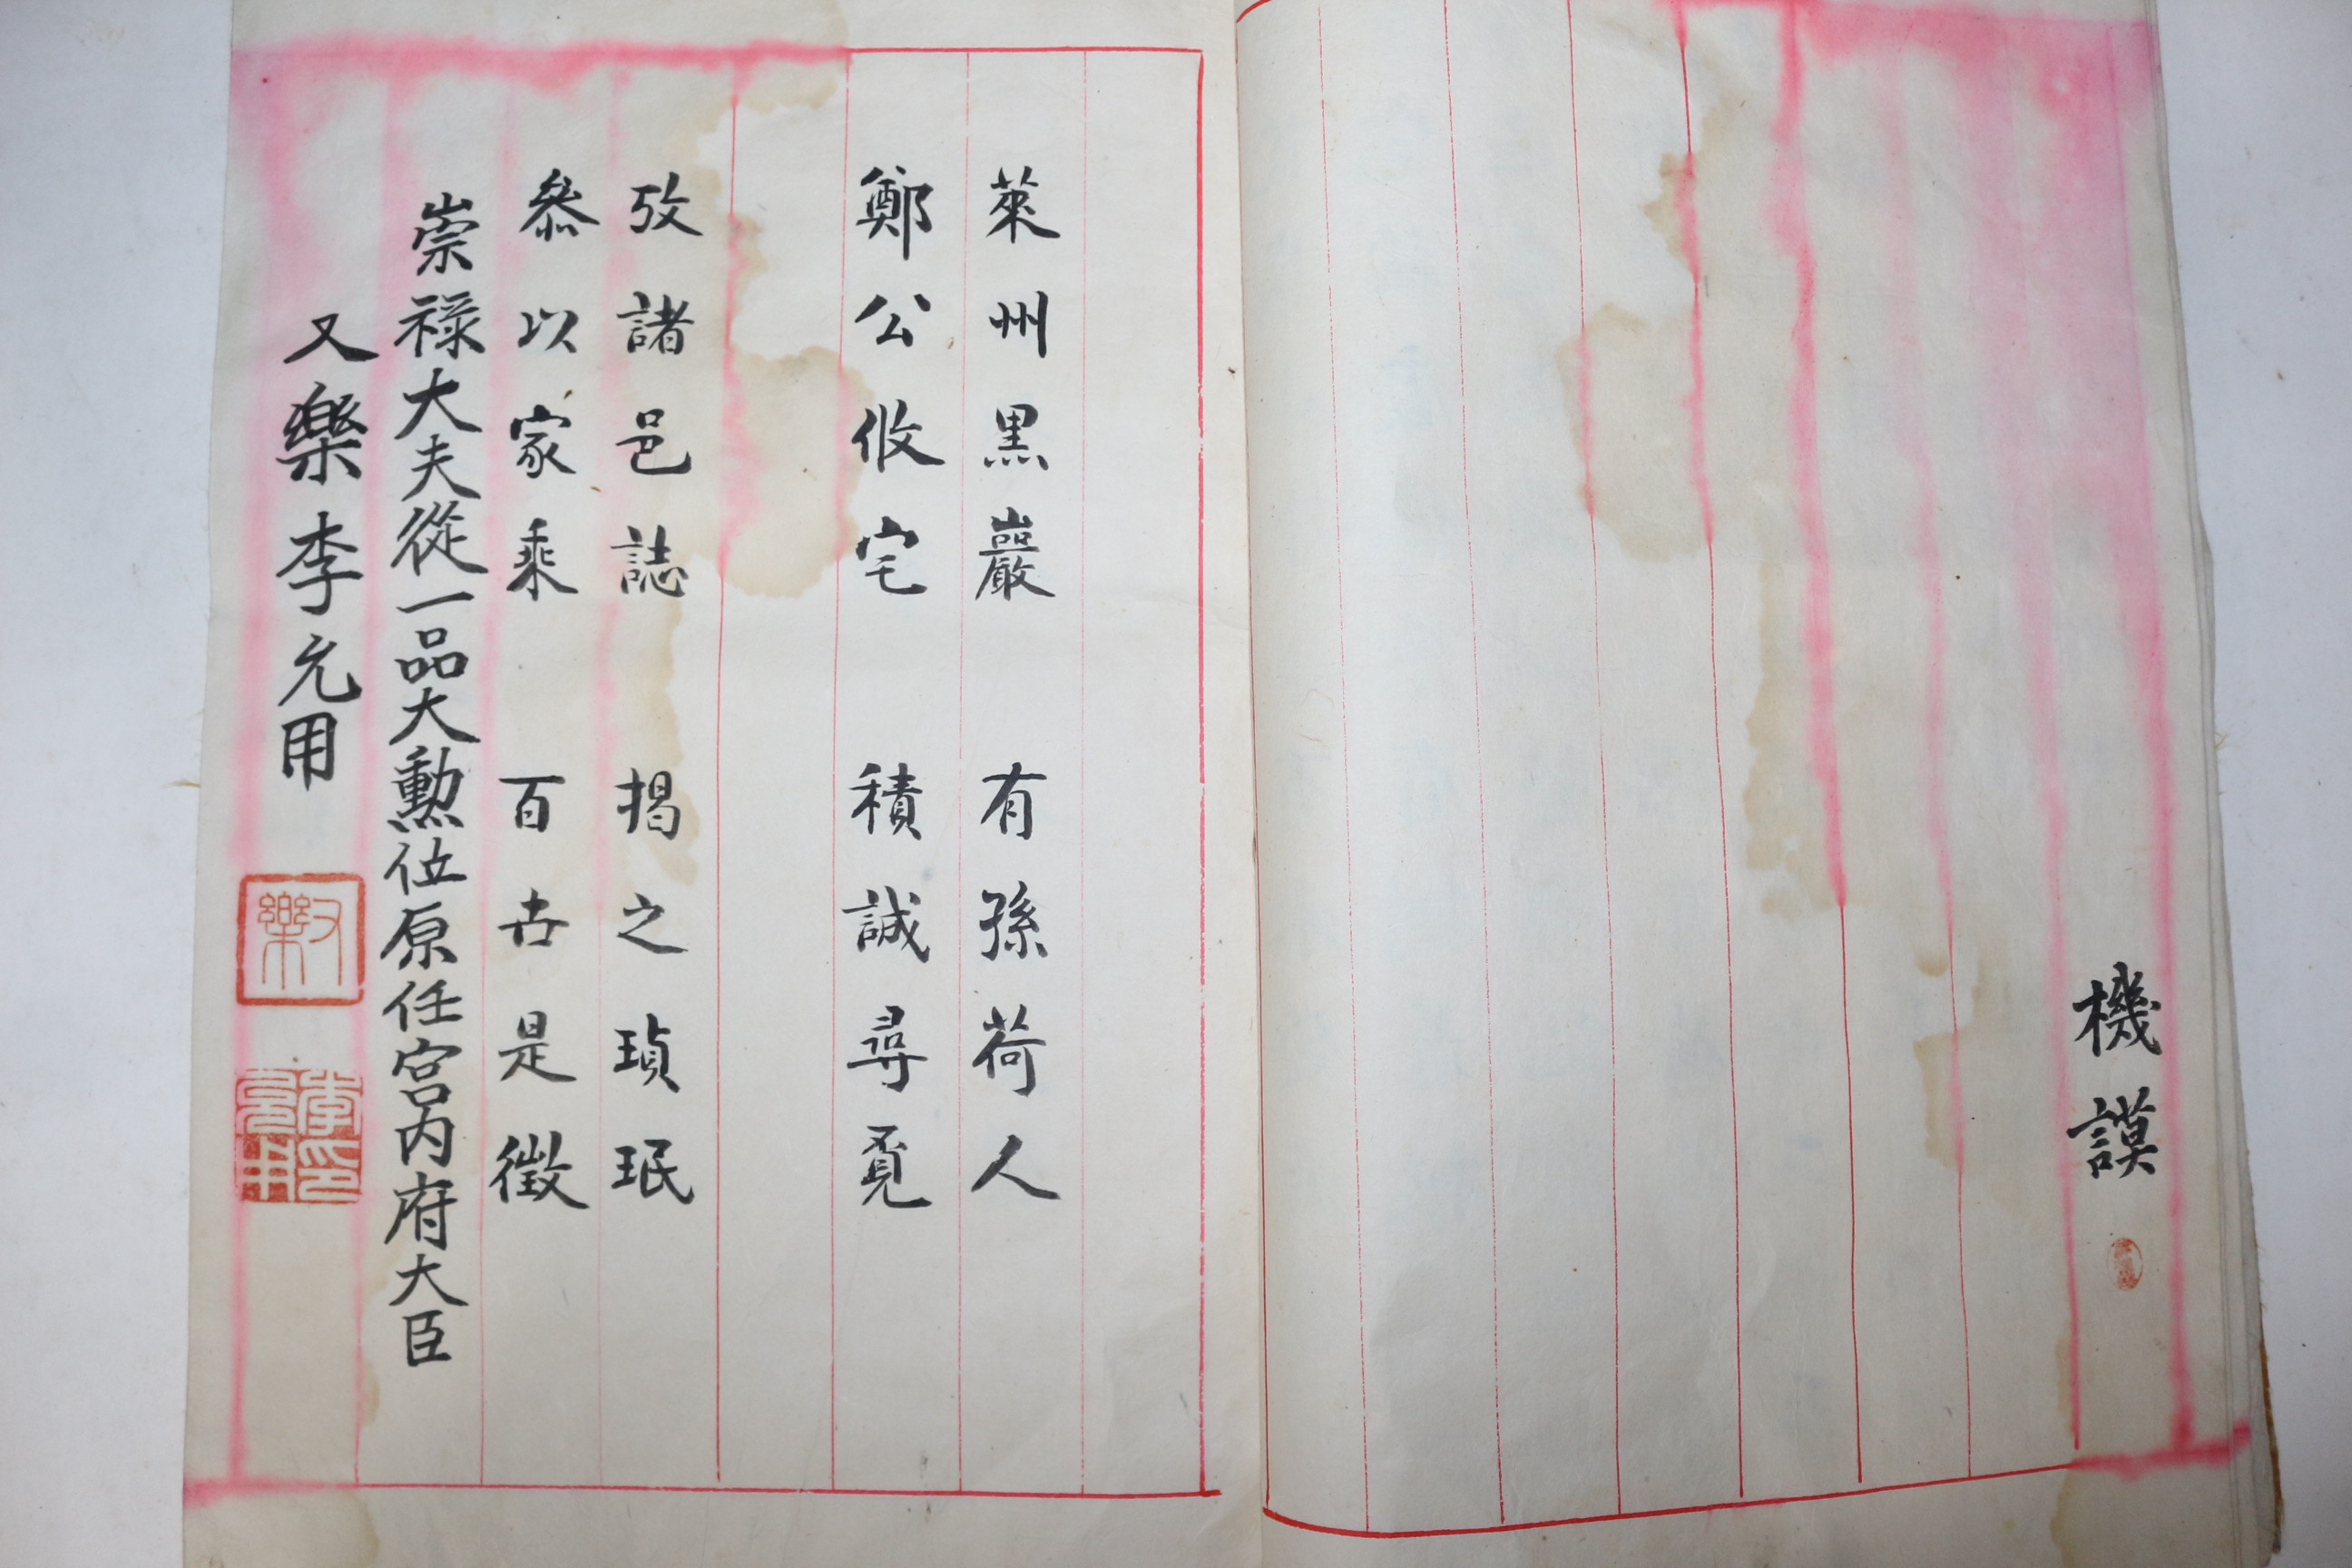 機謨
萊州黑巖 有孫荷人
鄭公攸宅 積誠尋覓
攷諸邑誌 揭之瑱珉
叅以家乘 百世是徵
崇祿大夫從一品大勳位原任宮內府大臣
又樂李允用
又樂
李允用印